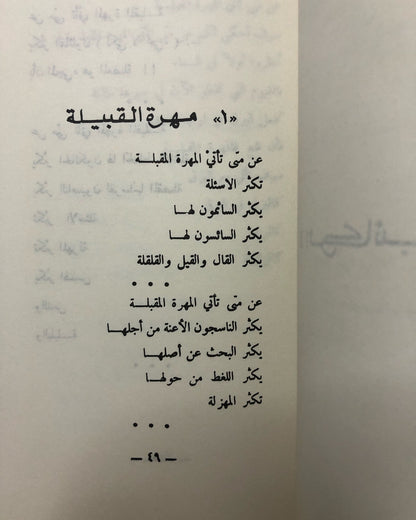 «١» مهرة القبيلة
عن متى تأتيْ المهرة المقبلة
تكثر الاسئلة
يكثر السائمون لها
يكثر السائسون لها
يكثر القال والقيل والقلقلة
• • •
عن متى تأتي المهرة المقبلة
يكثر الناسجون الأعنة من أجلها
يكثر البحث عن أصلها
يكثر اللغط من حولها
تكثر المهزلة
• • •
— ٤٩ —